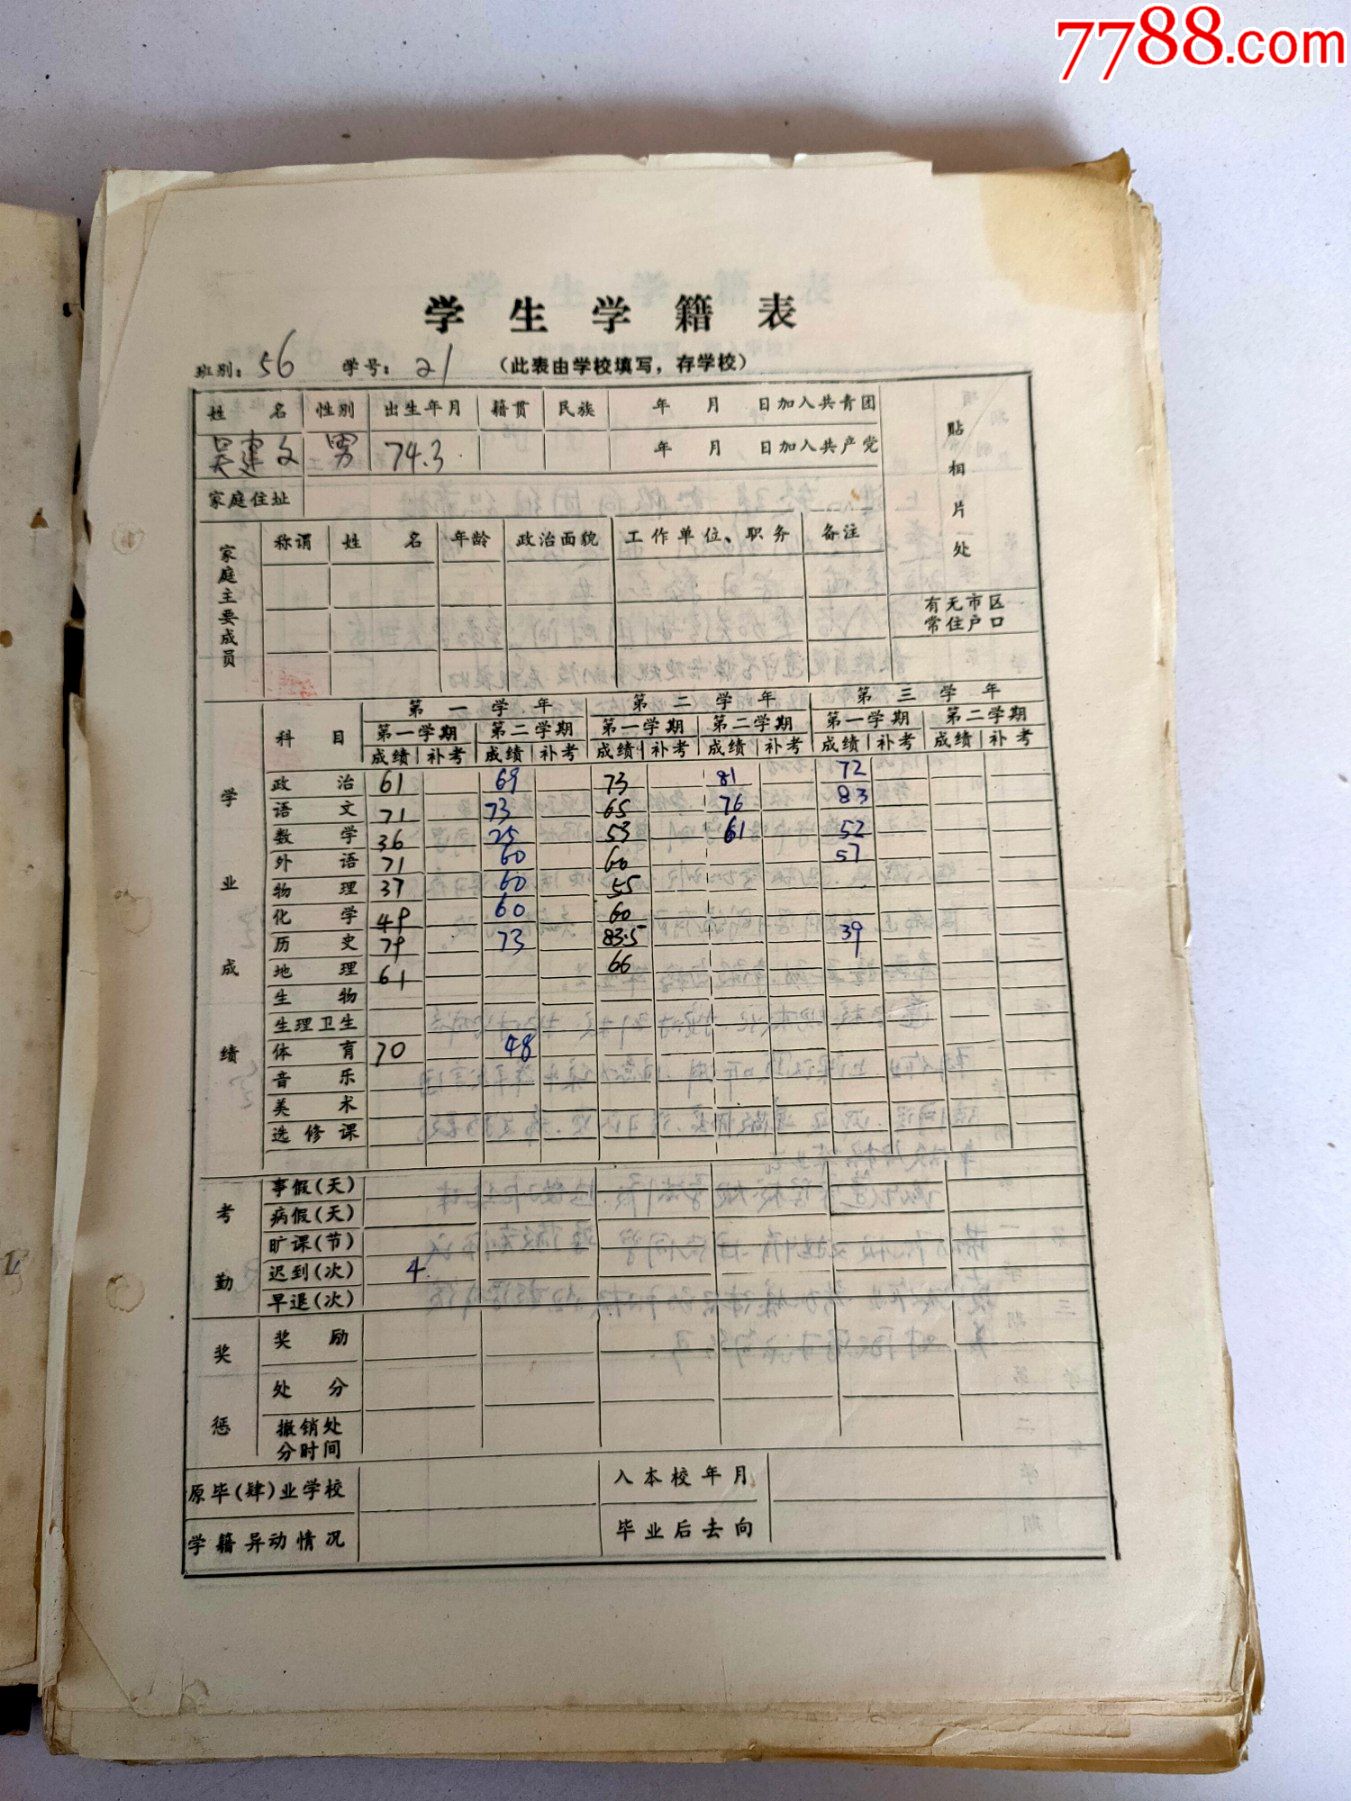 7788.com
学生学籍表
班别：56 学号：21 （此表由学校填写，存学校）
姓名 性别 出生年月 籍贯 民族 年 月 日加入共青团
吴建文 男 74.3 年 月 日加入共产党
贴相片处
家庭住址
家庭主要成员 称谓 姓名 年龄 政治面貌 工作单位、职务 备注
有无市区
常住户口
学业成绩 科目 第一学年 第二学年 第三学年
第一学期 第二学期 第一学期 第二学期 第一学期 第二学期
成绩 补考 成绩 补考 成绩 补考 成绩 补考 成绩 补考 成绩 补考
政治 61 69 73 81 72
语文 71 73 65 76 83
数学 36 25 53 61 52
外语 71 60 60 57
物理 37 60 55
化学 49 60 60
历史 79 73 83.5 39
地理 61 66
生物
生理卫生
体育 70 48
音乐
美术
选修课
考勤 事假(天)
病假(天)
旷课(节)
迟到(次) 4
早退(次)
奖惩 奖励
处分
撤销处
分时间
原毕(肄)业学校 入本校年月
学籍异动情况 毕业后去向